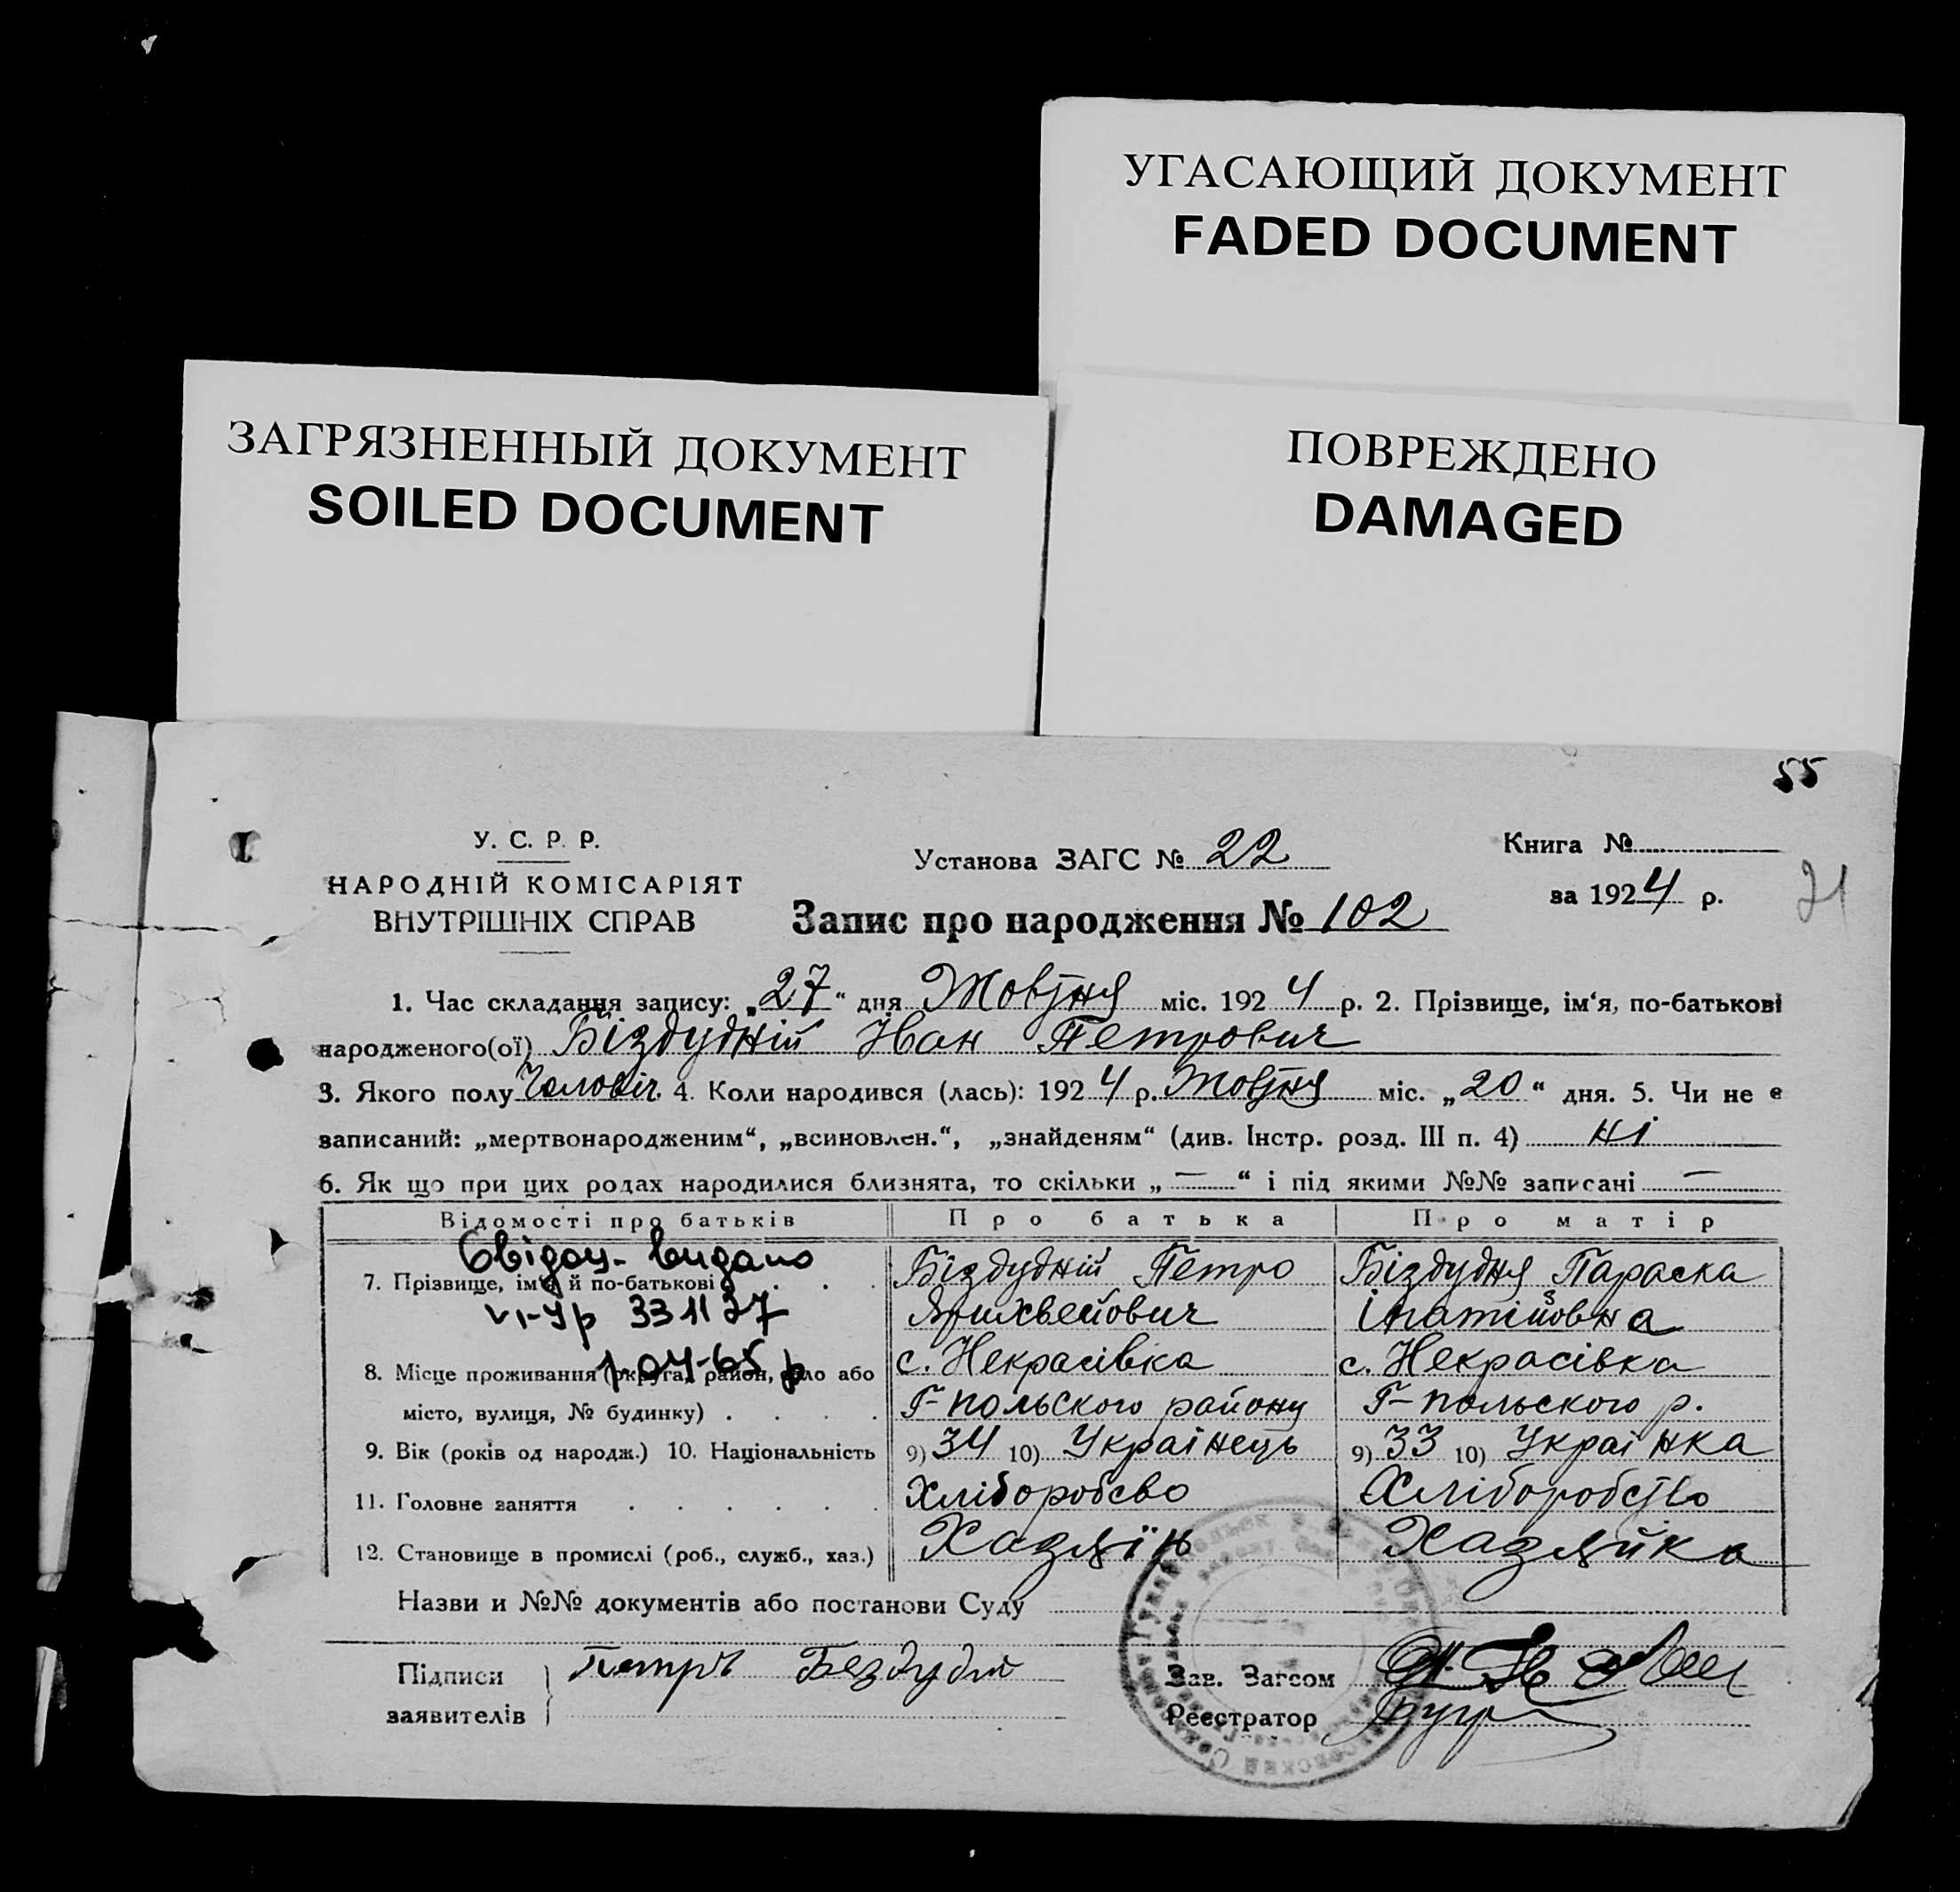 УГАСАЮЩИЙ ДОКУМЕНТ
FADED DOCUMENT
ЗАГРЯЗНЕННЫЙ ДОКУМЕНТ
SOILED DOCUMENT
ПОВРЕЖДЕНО
DAMAGED
55
У. С. Р. Р.
НАРОДНІЙ КОМІСАРІЯТ
ВНУТРІШНІХ СПРАВ
Установа ЗАГС № 22
Запис про народження № 102
Книга №
за 1924 р.
21
1. Час складання запису: „27“ дня Жовтня міс. 1924 р. 2. Прізвище, ім‘я, по-батькові
народженого(ої) Біздудній Іван Петрович
3. Якого полу Чоловіч. 4. Коли народився (лась): 1924 р. Жовтня міс. „20“ дня. 5. Чи не є
записаний: „мертвонародженим“, „всиновлен.“, „знайденям“ (див. Інстр. розд. III п. 4) ні
6. Як що при цих родах народилися близнята, то скільки „—“ і під якими №№ записані —
Відомості про батьків Про батька Про матір
Свідоц. видано
7. Прізвище, ім‘я й по-батькові Біздудній Петро Біздудня Параска
VI-УР 331127 Ярихвейович Ігнатійовна
1-04-65 р
8. Місце проживання (округа, район, село або с. Некрасівка с. Некрасівка
місто, вулиця, № будинку) Г-польского району Г-польского р.
9. Вік (років од народж.) 10. Національність 9) 34 10) Українець 9) 33 10) Українка
11. Головне заняття Хліборобсво Хліборобство
12. Становище в промислі (роб., служб., хаз.) Хазяїн Хазяйка
Назви и №№ документів або постанови Суду
Підписи заявителів Петръ Бездудній
Зав. Загсом
Реєстратор